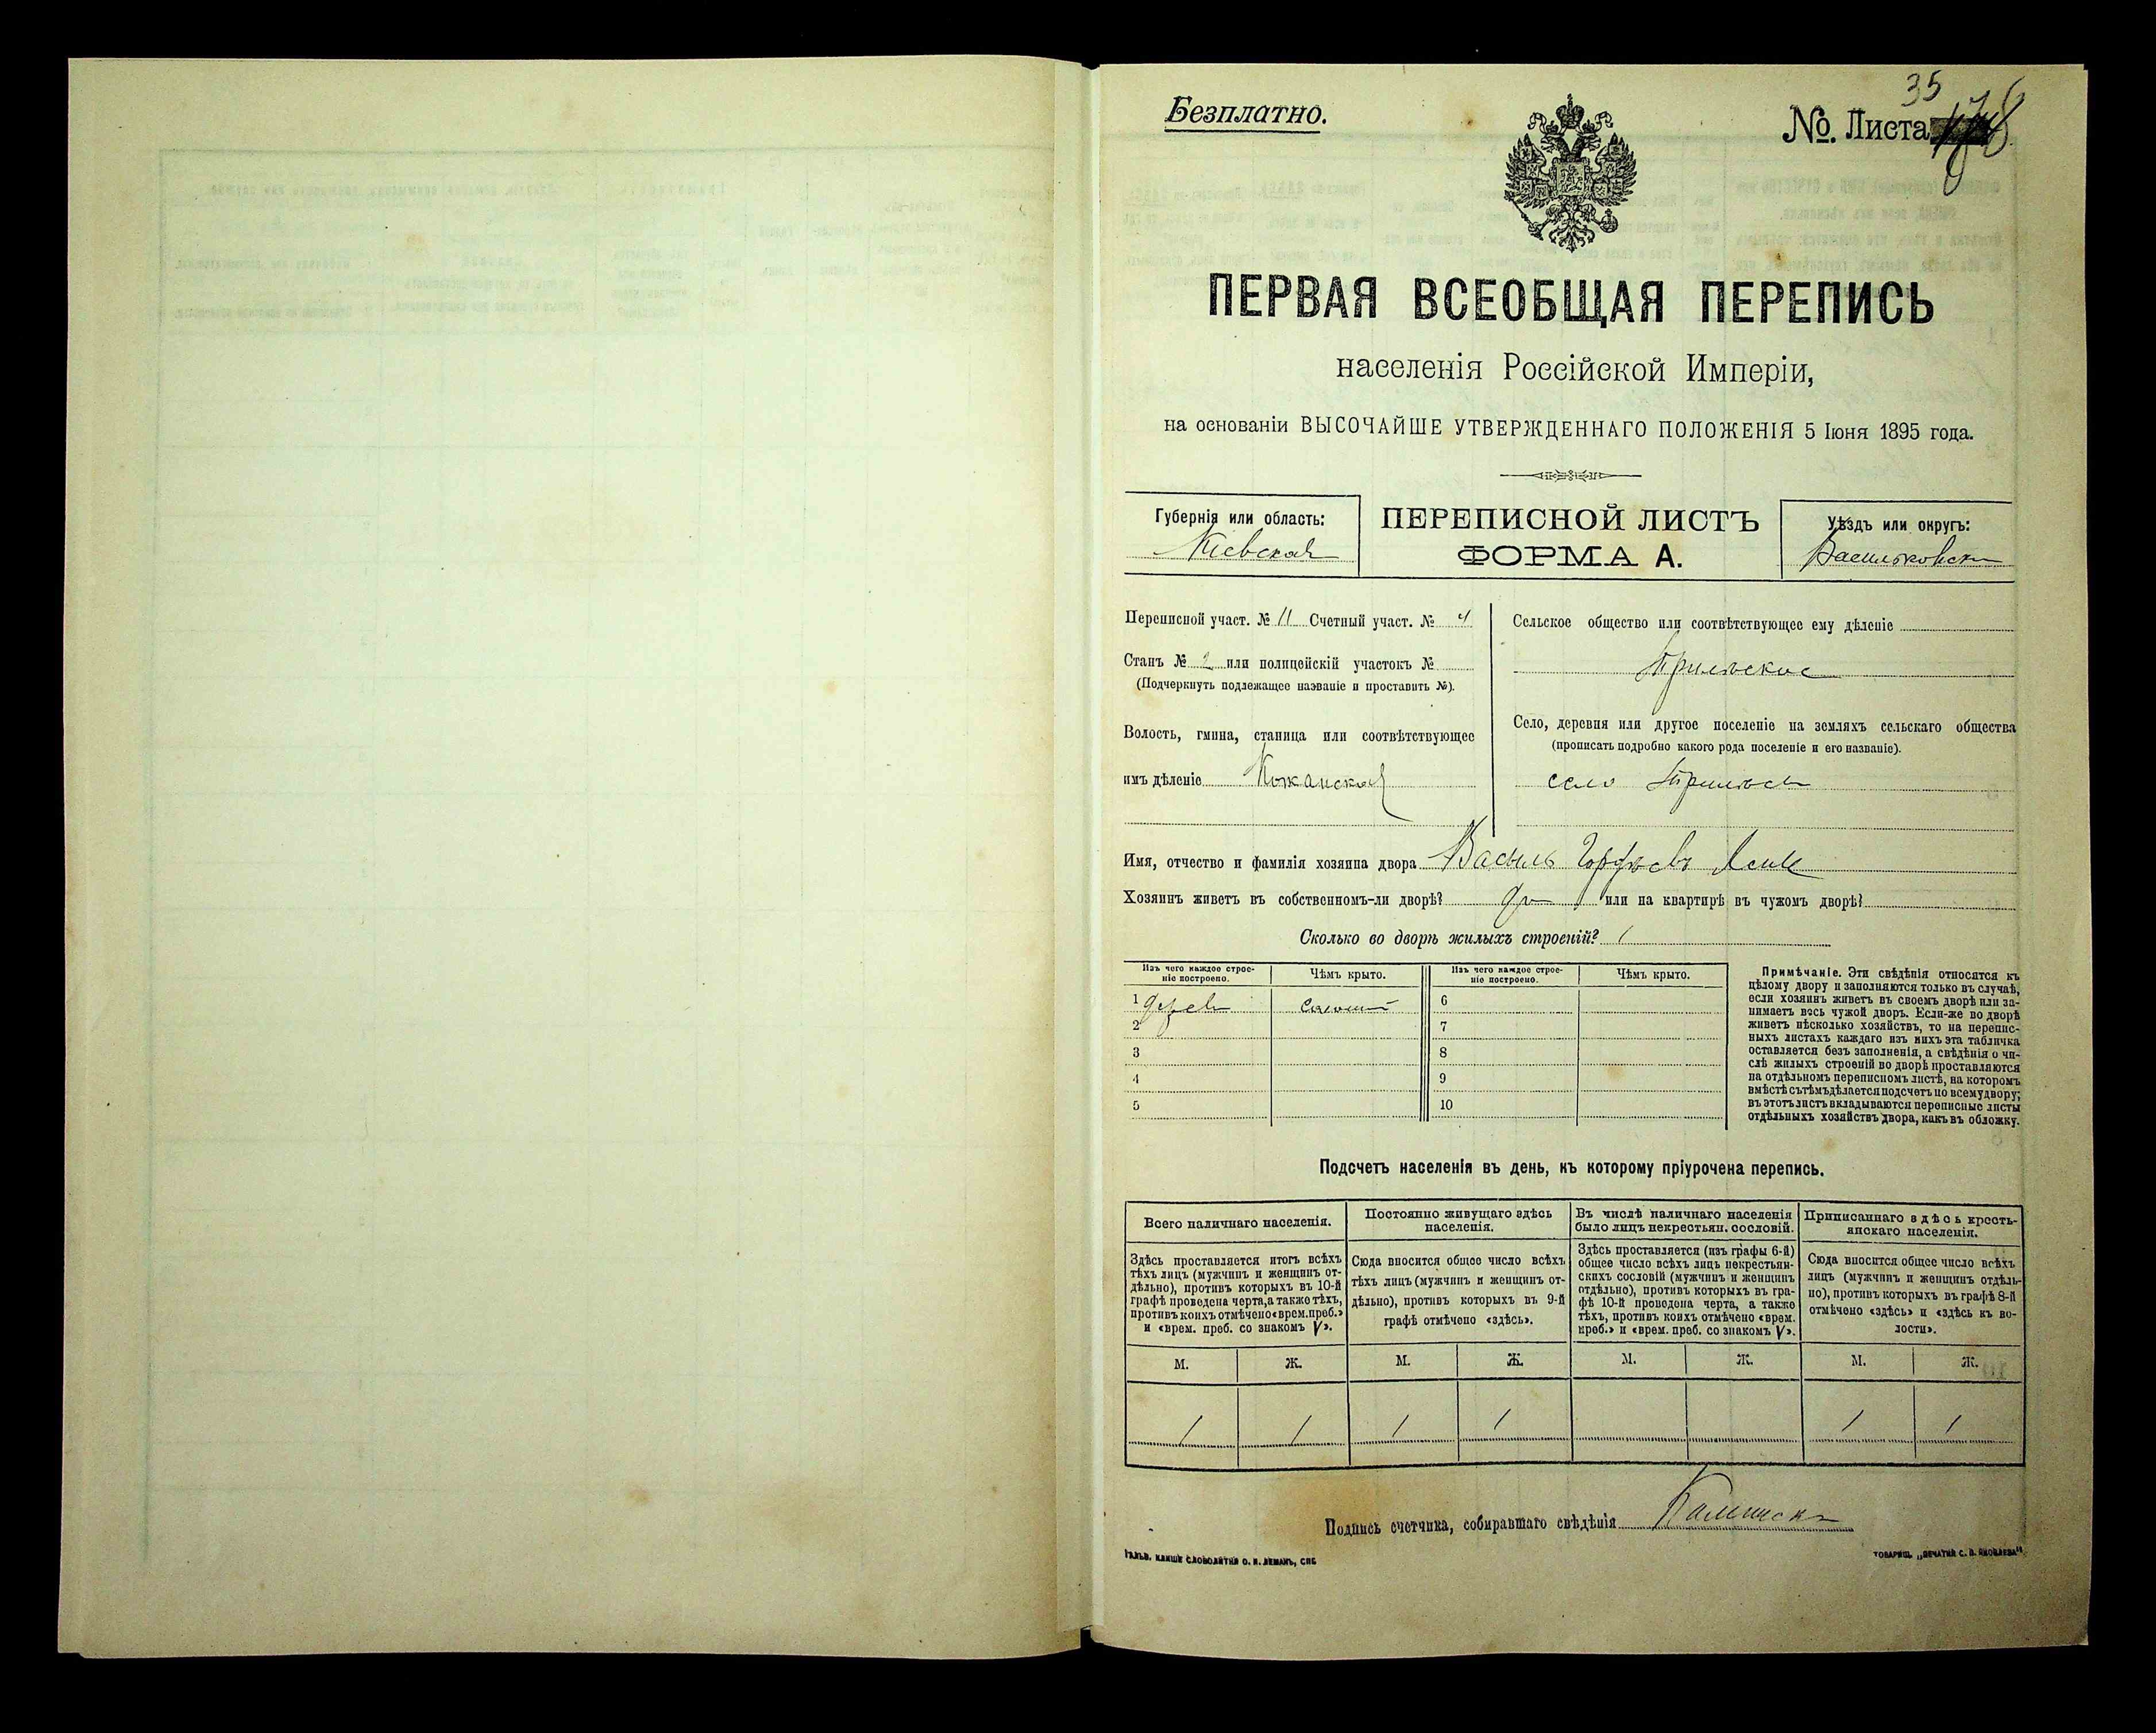 Безплатно.
35
No. Листа
ПЕРВАЯ ВСЕОБЩАЯ ПЕРЕПИСЬ
населенія Россійской Имперіи,
на основаніи ВЫСОЧАЙШЕ УТВЕРЖДЕННАГО ПОЛОЖЕНІЯ 5 Іюня 1895 года.
Губернія или область:
Кіевская
ПЕРЕПИСНОЙ ЛИСТЪ
ФОРМА А.
Уѣздъ или округъ:
Васильковск
Переписной участ. № 11 Счетный участ. № 4
Станъ № 2 или полицейскій участокъ №
(Подчеркнуть подлежащее названіе и проставить №).
Волость, гмина, станица или соотвѣтствующее
имъ дѣленіе Кожанская
Сельское общество или соотвѣтствующее ему дѣленіе
Село, деревня или другое поселеніе на земляхъ сельскаго общества
(прописать подробно какого рода поселеніе и его названіе).
село
Имя, отчество и фамилія хозяина двора Василь
Хозяинъ живетъ въ собственномъ-ли дворѣ? или на квартирѣ въ чужомъ дворѣ?
Сколько во дворѣ жилыхъ строеній? 1
Изъ чего каждое строе-
ніе построено.
Чѣмъ крыто.
Изъ чего каждое строе-
ніе построено.
Чѣмъ крыто.
1 6
2 7
3 8
4 9
5 10
Примѣчаніе. Эти свѣдѣнія относятся къ
цѣлому двору и заполняются только въ случаѣ,
если хозяинъ живетъ въ своемъ дворѣ или за-
нимаетъ весь чужой дворъ. Если-же во дворѣ
живетъ нѣсколько хозяйствъ, то на перепис-
ныхъ листахъ каждаго изъ нихъ эта табличка
оставляется безъ заполненія, а свѣдѣнія о чи-
слѣ жилыхъ строеній во дворѣ проставляются
на отдѣльномъ переписномъ листѣ, на которомъ
вмѣстѣ съ тѣмъ дѣлается подсчетъ по всему двору;
въ этотъ листъ вкладываются переписные листы
отдѣльныхъ хозяйствъ двора, какъ въ обложку.
Подсчетъ населенія въ день, къ которому пріурочена перепись.
Всего наличнаго населенія.
Здѣсь проставляется итогъ всѣхъ
тѣхъ лицъ (мужчинъ и женщинъ от-
дѣльно), противъ которыхъ въ 10-й
графѣ проведена черта, а также тѣхъ,
противъ коихъ отмѣчено «врем. преб.»
и «врем. преб. со знакомъ V».
Постоянно живущаго здѣсь
населенія.
Сюда вносится общее число всѣхъ
тѣхъ лицъ (мужчинъ и женщинъ от-
дѣльно), противъ которыхъ въ 9-й
графѣ отмѣчено «здѣсь».
Въ числѣ наличнаго населенія
было лицъ некрестьян. сословій.
Здѣсь проставляется (изъ графы 6-й)
общее число всѣхъ лицъ некрестьян-
скихъ сословій (мужчинъ и женщинъ
отдѣльно), противъ которыхъ въ гра-
фѣ 10-й проведена черта, а также
тѣхъ, противъ коихъ отмѣчено «врем.
преб.» и «врем. преб. со знакомъ V».
Приписаннаго здѣсь кресть-
янскаго населенія.
Сюда вносится общее число всѣхъ
лицъ (мужчинъ и женщинъ отдѣль-
но), противъ которыхъ въ графѣ 8-й
отмѣчено «здѣсь» и «здѣсь къ во-
лости».
М. Ж. М. Ж. М. Ж. М. Ж.
1 1 1 1 1 1
Подпись счетчика, собиравшаго свѣдѣнія
ГАЛЬВ. КЛИШЕ СЛОВОЛИТНИ О. И. ЛЕМАНЪ, СПБ
ТОВАРИЩ. „ПЕЧАТНЯ С. П. ЯКОВЛЕВА“